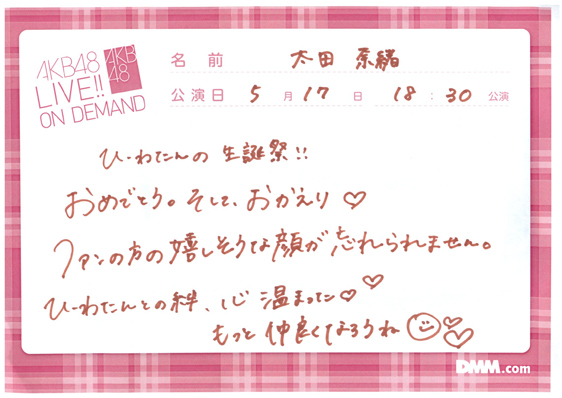 AKB48
LIVE!!
ON DEMAND
AKB
48
名前 太田 奈緒
公演日 5月17日 18:30公演
ひーわたんの生誕祭!!
おめでとう。そして、おかえり♡
ファンの方の嬉しそうな顔が忘れられません。
ひーわたんとの絆、心温まった♡♡
もっと仲良くなろうね
DMM.com